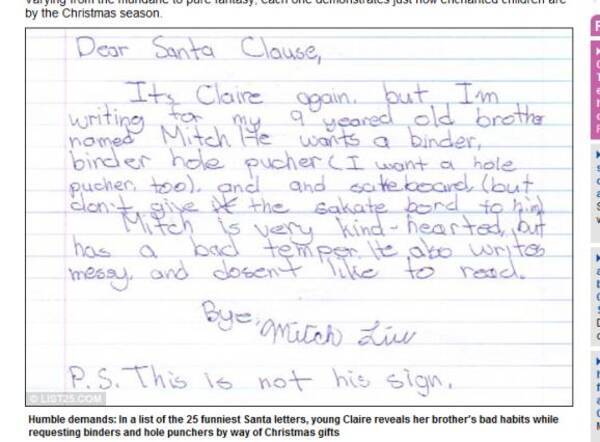 by the Christmas season.
Dear Santa Clause,
Its Claire again. but I'm
writing for my 9 yeared old brother
named Mitch He wants a binder,
binder hole pucher (I want a hole
pucher, too), and and scateboard (but
don't give the sakate bord to him)
Mitch is very kind-hearted, but
has a bad temper. He also writes
messy, and dosen't like to read.
Bye, Mitch Liu
P.S. This is not his sign.
© LIST25.COM
Humble demands: In a list of the 25 funniest Santa letters, young Claire reveals her brother's bad habits while
requesting binders and hole punchers by way of Christmas gifts